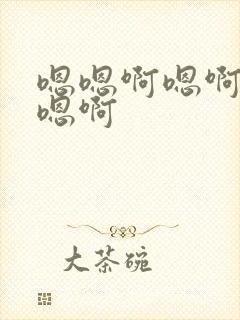 嗯嗯啊嗯啊
嗯啊
大茶碗